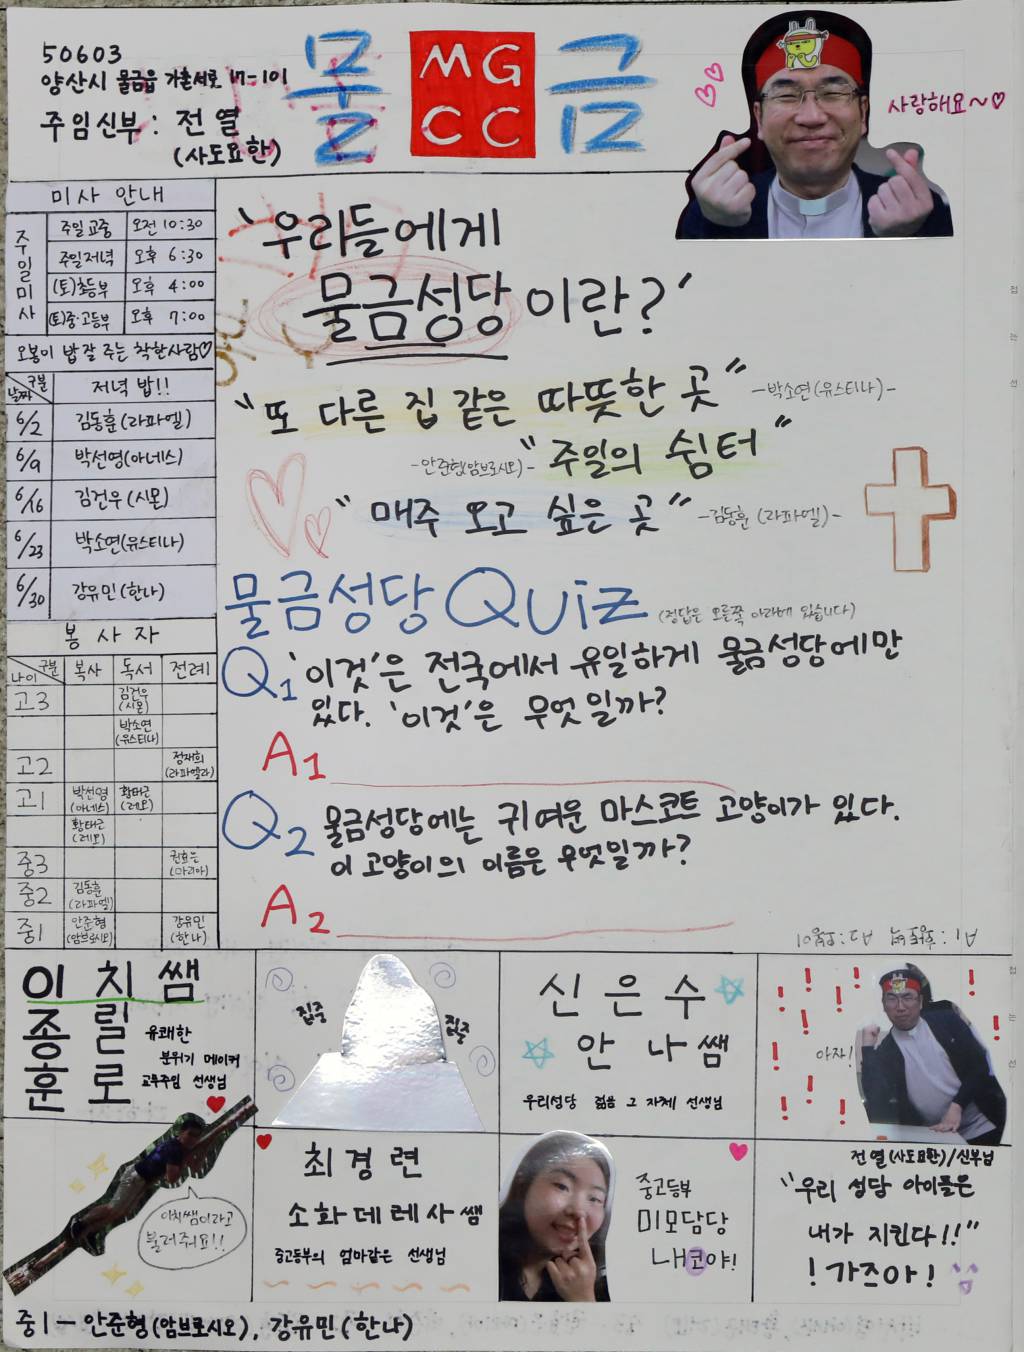 50603
양산시 물금읍 가촌서로 17-101
주임신부 : 전 열
(사도요한)
물 MGCC 금
사랑해요~♡
미사 안내
주일미사
주일교중 오전 10:30
주일저녁 오후 6:30
(토)초등부 오후 4:00
(토)중·고등부 오후 7:00
오봉이 밥 잘 주는 착한사람♡
구분 날짜 저녁 밥!!
6/2 김동훈(라파엘)
6/9 박선영(아네스)
6/16 김건우(시몬)
6/23 박소연(유스티나)
6/30 강유민(한나)
봉 사 자
구분 나이 복사 독서 전례
고3 김건우(시몬)
박소연(유스티나)
고2 정재희(라파엘라)
고1 박선영(아네스) 황태근(레오)
황태근(레오)
중3 권효은(마리아)
중2 김동훈(라파엘)
중1 안준형(암브로시오) 강유민(한나)
‘우리들에게
물금성당이란?’
“또 다른 집 같은 따뜻한 곳” -박소연(유스티나)-
-안준형(암브로시오)- “주일의 쉼터”
“매주 오고 싶은 곳” -김동훈(라파엘)-
물금성당 Quiz (정답은 오른쪽 아래에 있습니다)
Q1 ‘이것’은 전국에서 유일하게 물금성당에만
있다. ‘이것’은 무엇일까?
A1
Q2 물금성당에는 귀여운 마스코트 고양이가 있다.
이 고양이의 이름은 무엇일까?
A2
A2 : 오봉이
이치쌤
종릴
훈로
유쾌한
분위기 메이커
교무주임 선생님
이치쌤이라고
불러줘요!!
집중
집중
최 경 련
소화데레사쌤
중고등부의 엄마같은 선생님
신 은 수
안 나 쌤
우리성당 젊음 그 자체 선생님
중고등부
미모담당
나코야!
아자!
전 열(사도요한)/신부님
“우리 성당 아이들은
내가 지킨다!!”
! 가즈아 !
중1 - 안준형(암브로시오), 강유민(한나)